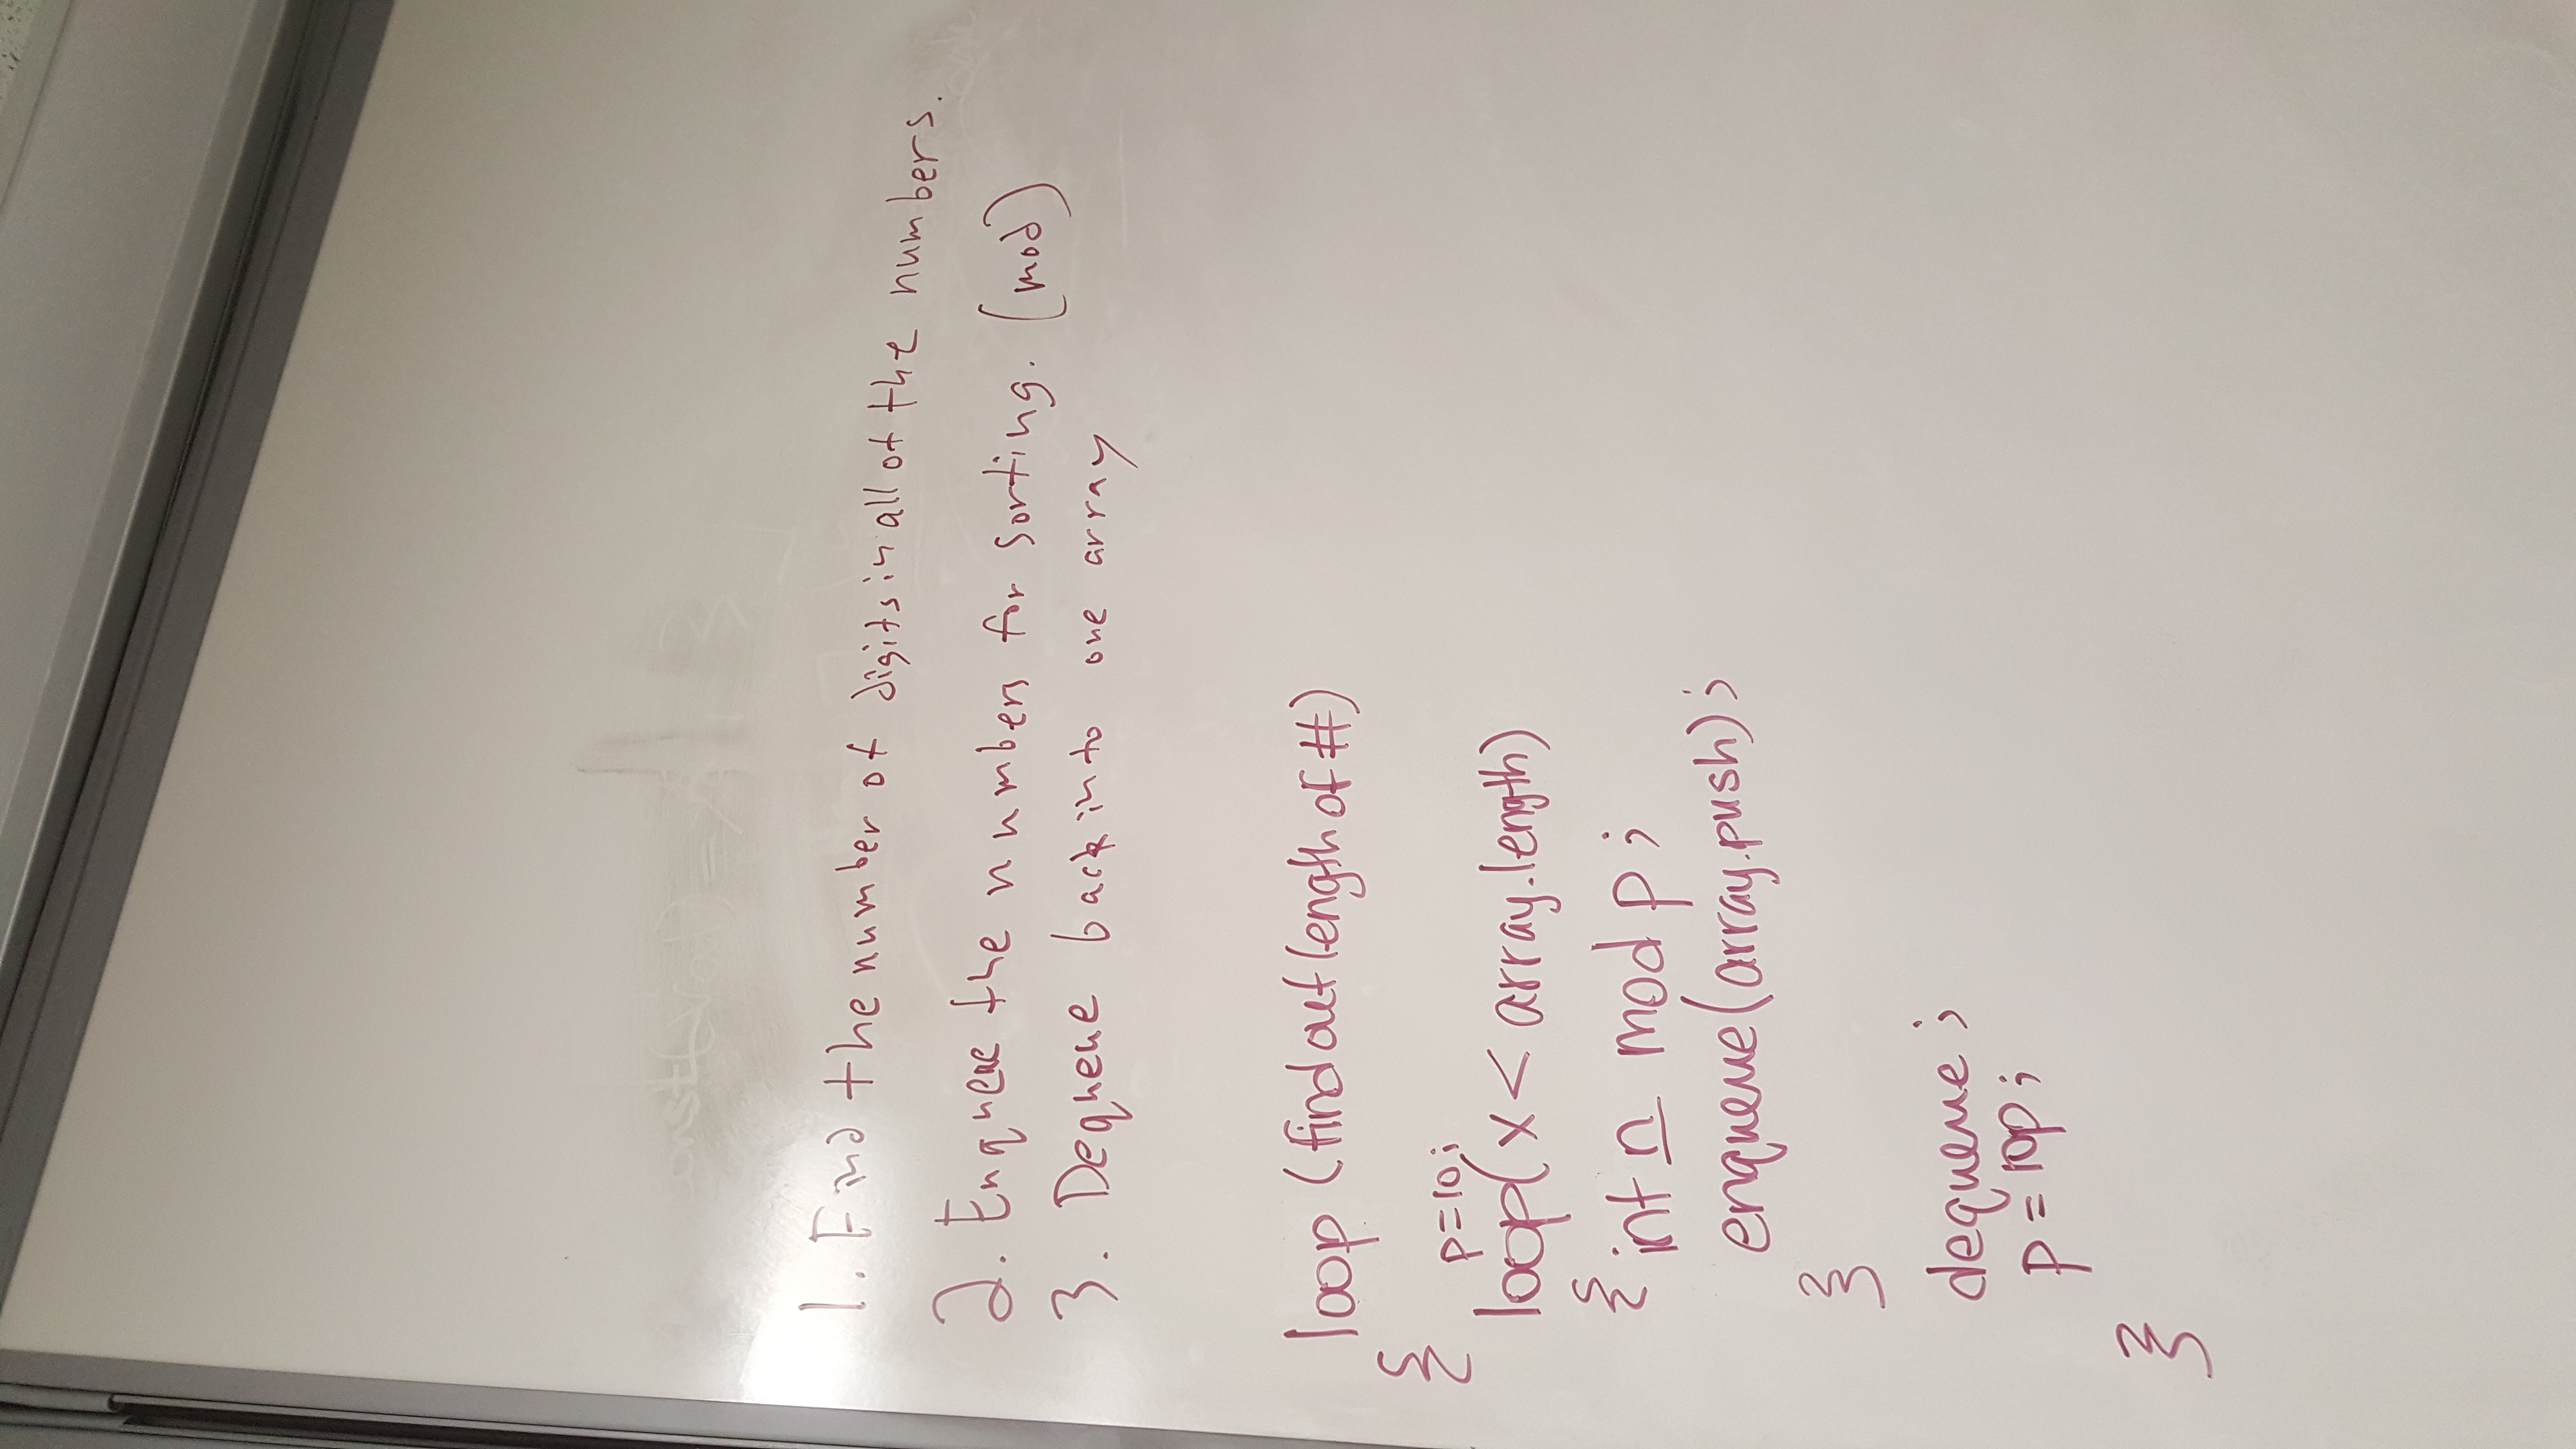 1. Find the number of digits in all of the numbers.
2. Enqueue the numbers for sorting. (mod)
3. Dequeue back into one array
loop (find out length of #)
{
p=10;
loop(x < array.length)
{ int n mod p;
enqueue(array.push);
}
dequeue;
p = 10p;
}